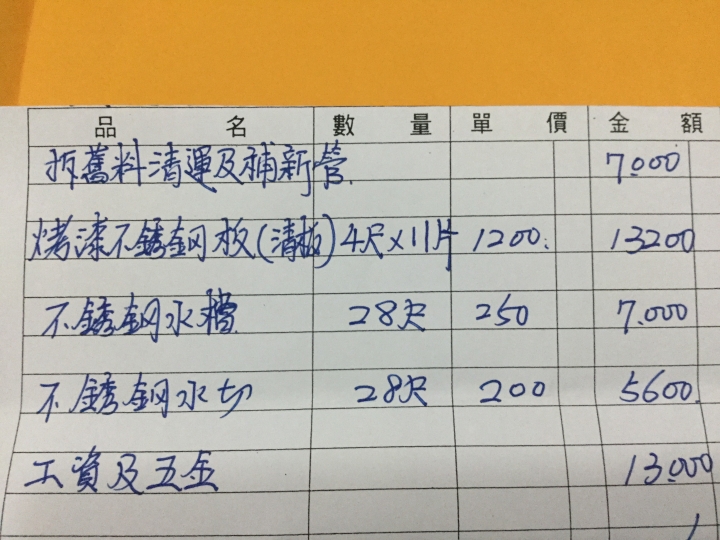 品名 數量 單價 金額
拆舊料清運及補新管 7.000
烤漆不銹鋼板(清板) 4尺×11片 1200. 13200
不銹鋼水槽 28尺 250 7.000
不銹鋼水切 28尺 200 5600.
工資及五金 13.000